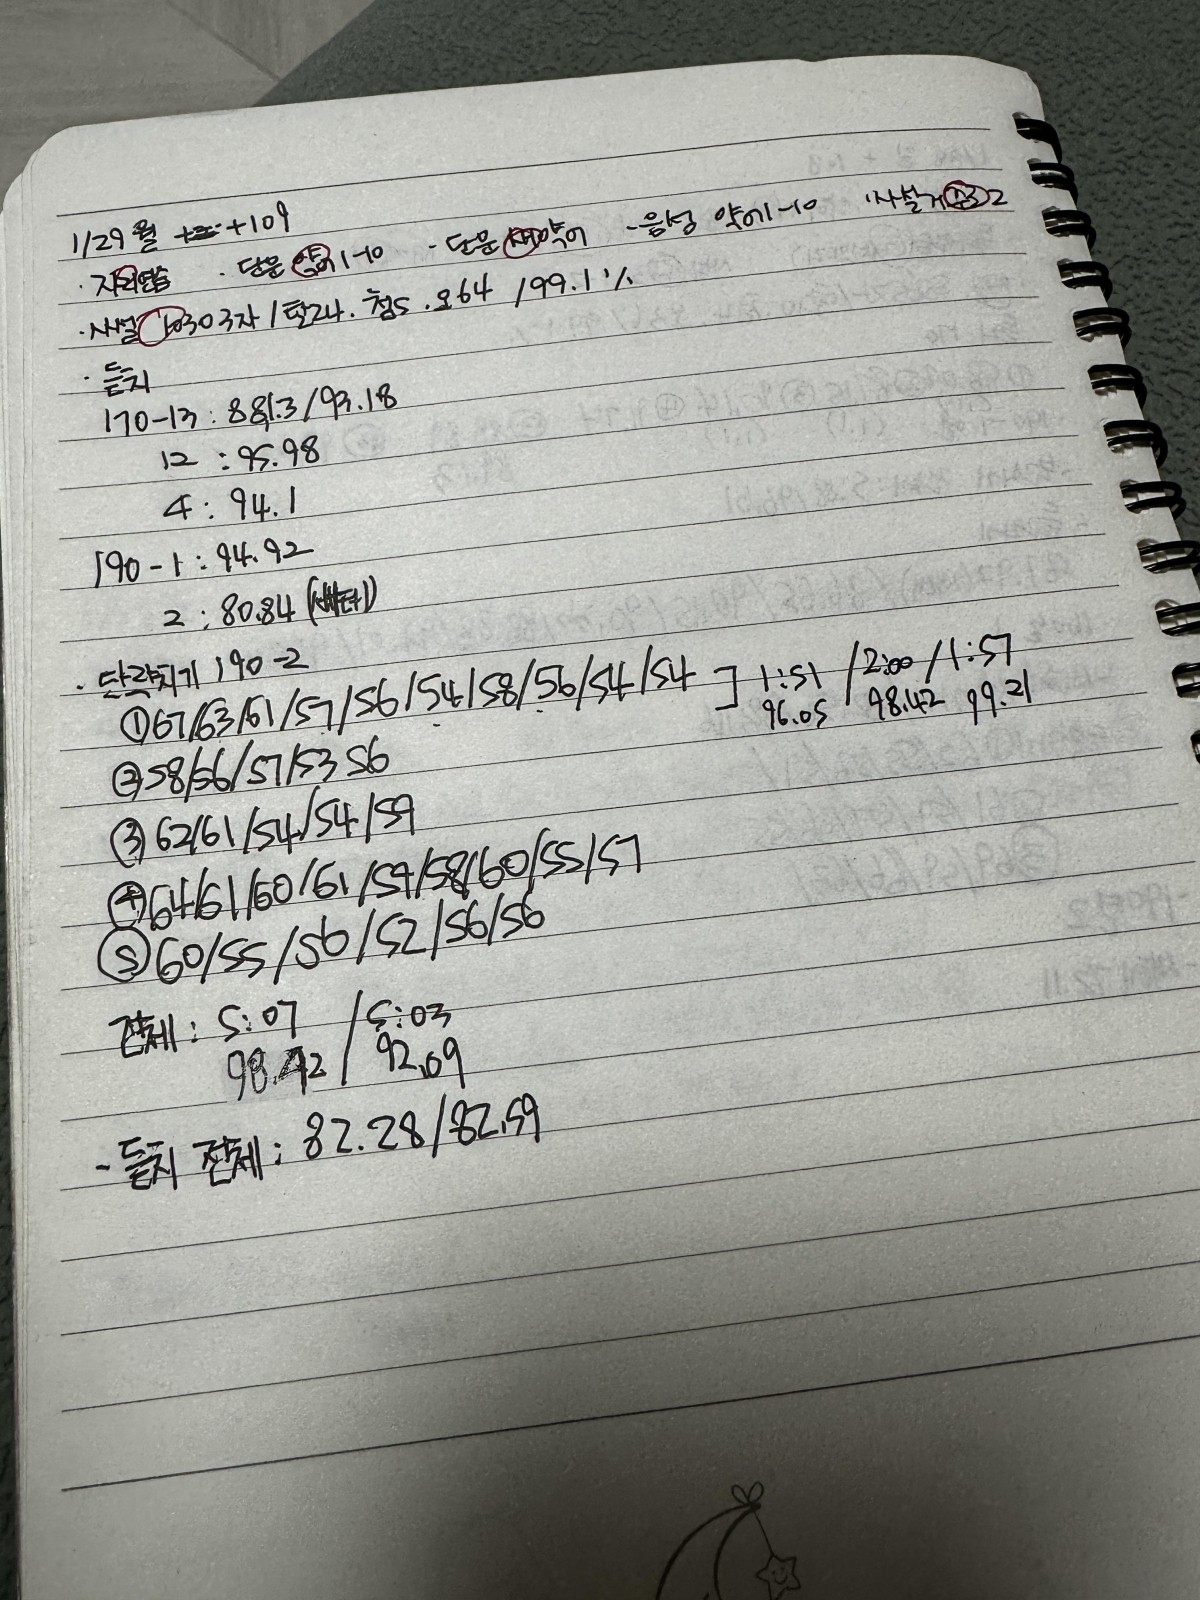 1/29 월 +109
· 자리연습 · 단문 약어1-10 - 단문 새약어 - 음성 약어1-10
· 사설 10303자 / 탈24. 첨5. 오64 / 99.1%
· 듣치
170-13 : 88.3/93.18
12 : 95.98
4 : 94.1
190-1 : 94.92
2 : 80.84 (배터)
· 단락치기 190-2
① 67/63/61/57/56/54/58/56/54/54 ] 1:51 / 2:00 / 1:57
96.05 98.42 99.21
② 58/56/57/53 56
③ 62/61/54/54/59
④ 64/61/60/61/59/58/60/55/57
⑤ 60/55/56/52/56/56
전체 : 5:07 / 5:03
98.42 / 92.09
- 듣치 전체 : 82.28/82.59